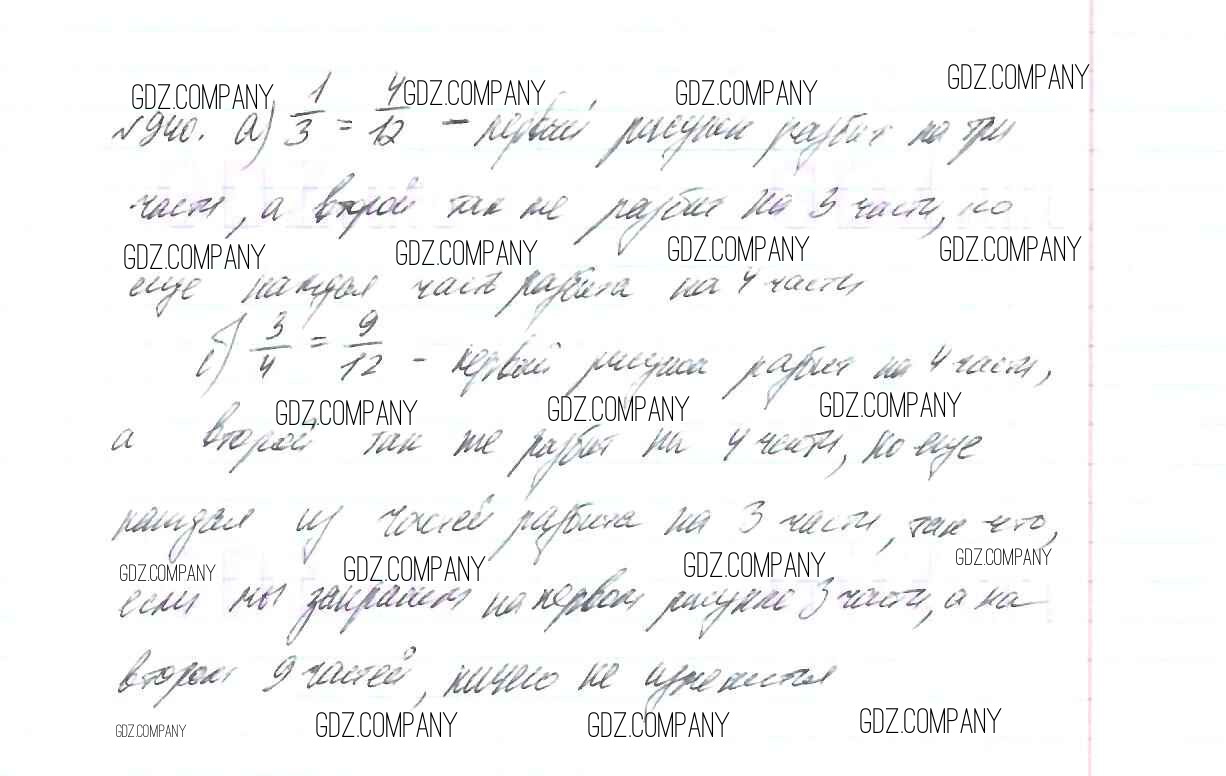 GDZ.COMPANY GDZ.COMPANY GDZ.COMPANY GDZ.COMPANY
№940. а) 1/3 = 4/12 – первый рисунок разбит на три
части, а второй так же разбит на 3 части, но
GDZ.COMPANY GDZ.COMPANY GDZ.COMPANY GDZ.COMPANY
еще каждая часть разбита на 4 части
б) 3/4 = 9/12 – первый рисунок разбит на 4 части,
GDZ.COMPANY GDZ.COMPANY GDZ.COMPANY
а второй так же разбит на 4 части, но еще
каждая из частей разбита на 3 части, так что,
GDZ.COMPANY GDZ.COMPANY GDZ.COMPANY GDZ.COMPANY
если мы закрасим на первом рисунке 3 части, а на
втором 9 частей, ничего не изменится
GDZ.COMPANY GDZ.COMPANY GDZ.COMPANY GDZ.COMPANY